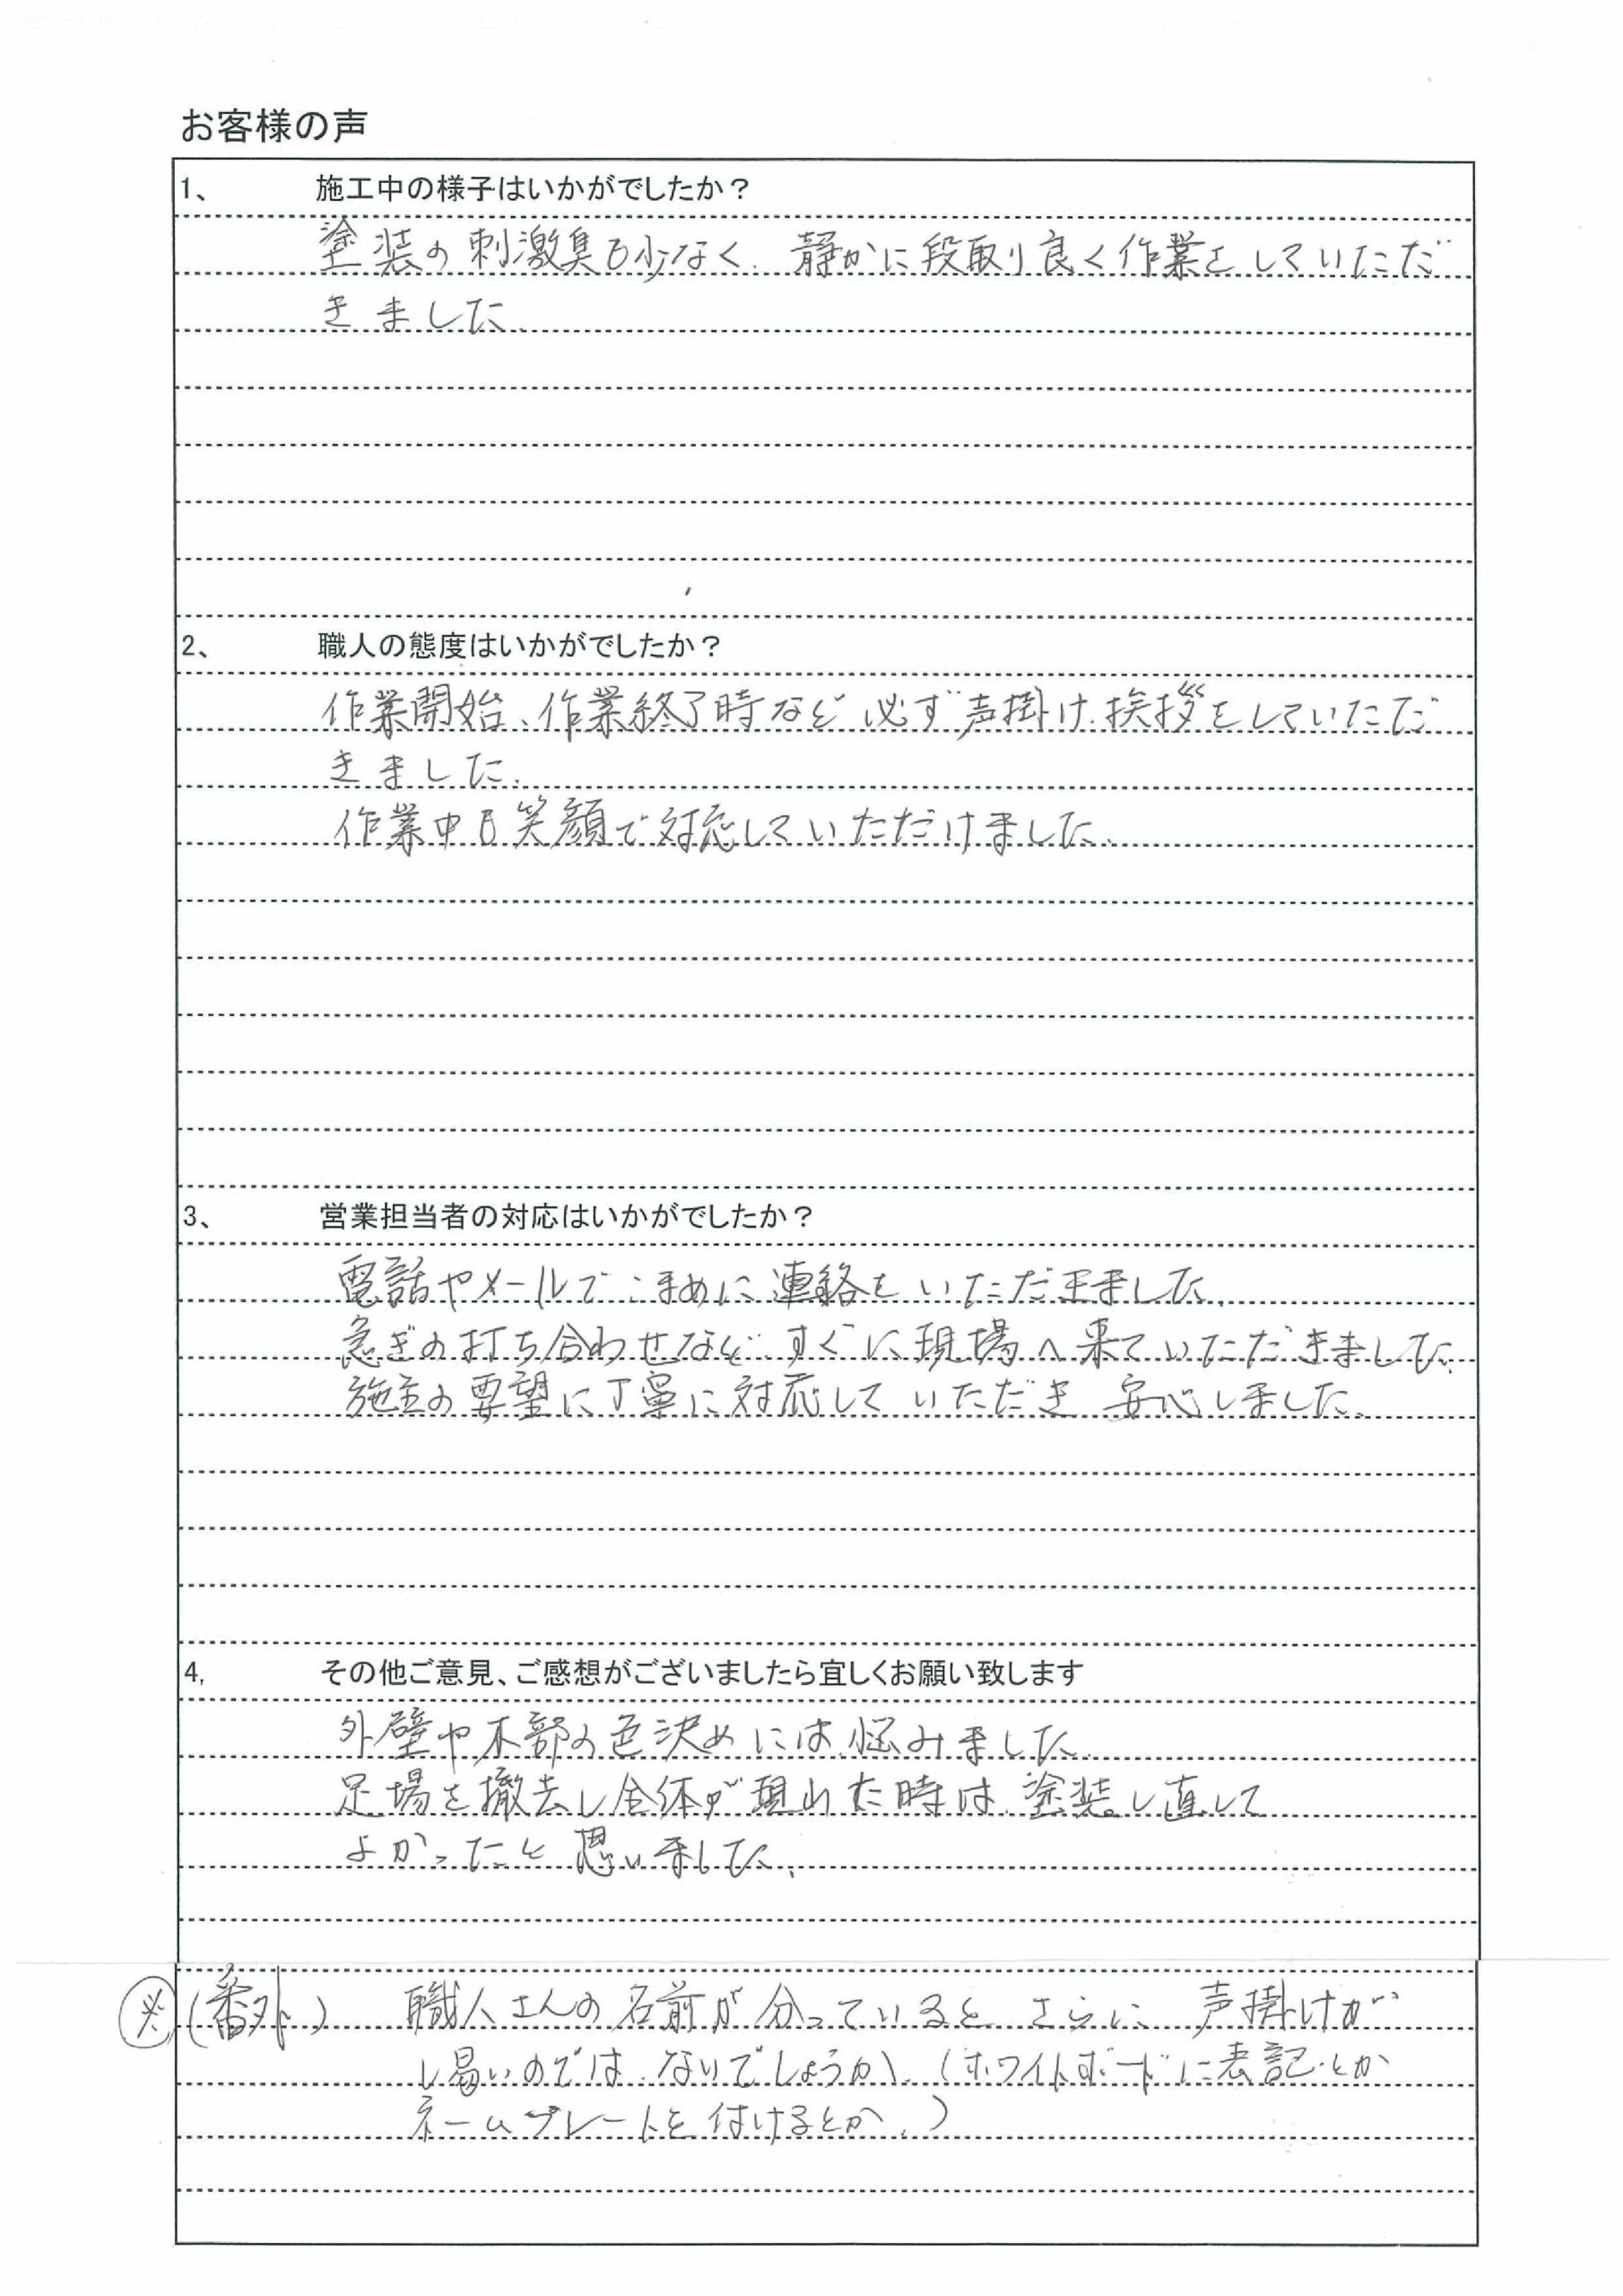 お客様の声
1、 施工中の様子はいかがでしたか？
塗装の刺激臭も少なく、静かに段取り良く作業をしていただ
きました。
2、 職人の態度はいかがでしたか？
作業開始、作業終了時など必ず声掛け、挨拶をしていただ
きました。
作業中も笑顔で対応していただけました。
3、 営業担当者の対応はいかがでしたか？
電話やメールでこまめに連絡をいただきました。
急ぎの打ち合わせなど、すぐに現場へ来ていただきました。
施主の要望に丁寧に対応していただき 安心しました。
4, その他ご意見、ご感想がございましたら宜しくお願い致します
外壁や木部の色決めには、悩みました。
足場を撤去し全体が現れた時は、塗装し直して
よかったと思いました。
※ (番外) 職人さんの名前が分っていると さらに 声掛けが
し易いのでは、ないでしょうか。(ホワイトボードに表記とか
ネームプレートを付けるとか。)